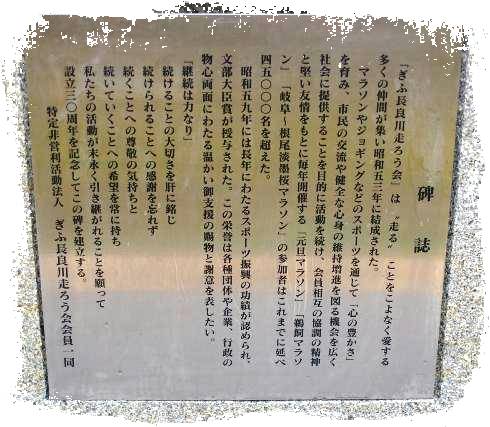 碑誌
「ぎふ長良川走ろう会」は〝走る〟ことをこよなく愛する
多くの仲間が集い昭和五三年に結成された。
マラソンやジョギングなどのスポーツを通じて「心の豊かさ」
を育み、市民の交流や健全な心身の維持増進を図る機会を広く
社会に提供することを目的に活動を続け、会員相互の協調の精神
と堅い友情をもとに毎年開催する「元旦マラソン」「鵜飼マラソ
ン」「岐阜〜根尾淡墨桜マラソン」の参加者はこれまでに延べ
四五〇〇〇名を超えた。
昭和五九年には長年にわたるスポーツ振興の功績が認められ、
文部大臣賞が授与された。この栄誉は各種団体や企業、行政の
物心両面にわたる温かい御支援の賜物と謝意を表したい。
「継続は力なり」
続けることの大切さを肝に銘じ
続けられることへの感謝を忘れず
続くことへの尊敬の気持ちと
続いていくことへの希望を常に持ち
私たちの活動が末永く引き継がれることを願って
設立三〇周年を記念してこの碑を建立する。
特定非営利活動法人 ぎふ長良川走ろう会会員一同